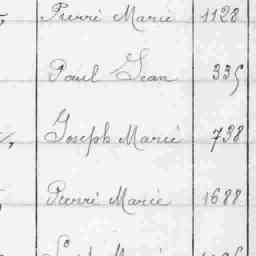 Pierré Marié 1128
Paul Jean 335
Joseph Marié 738
Pierré Marié 1688